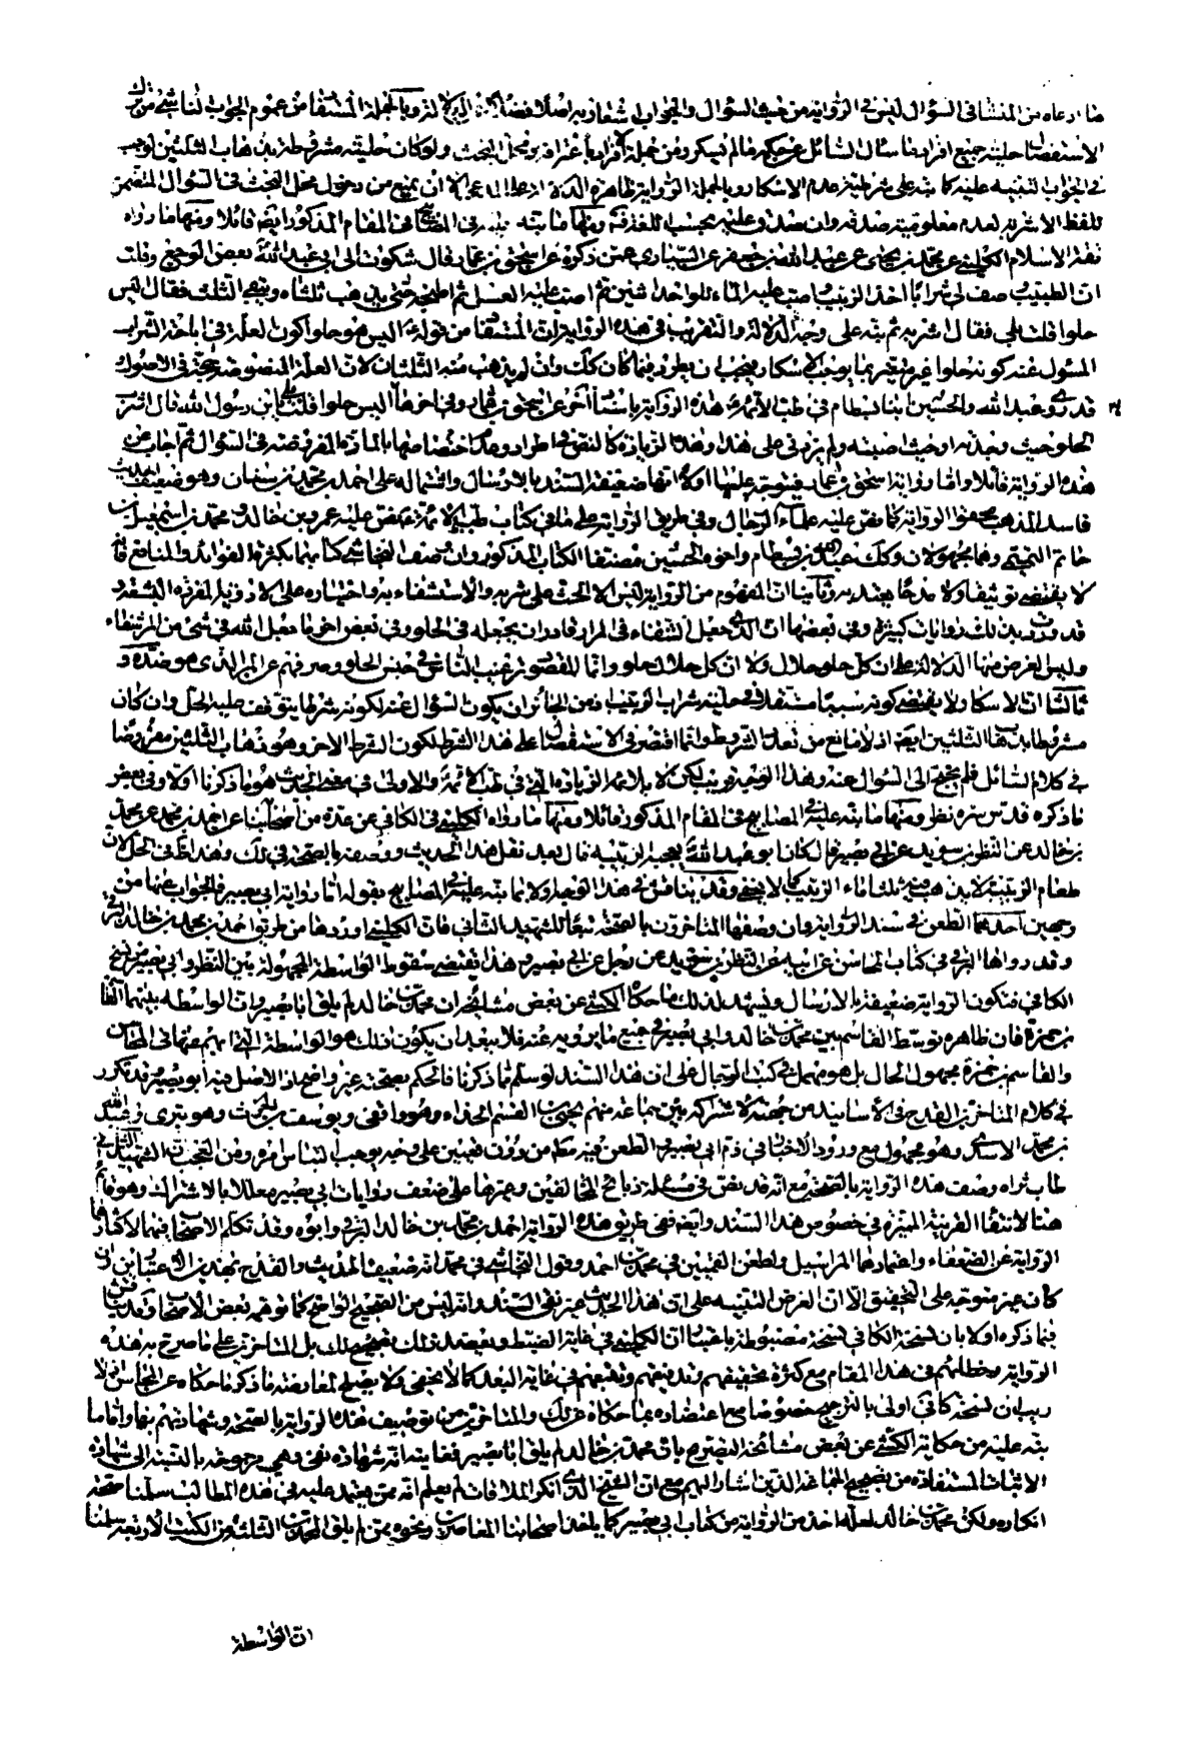 ما ادعاه من المنشأ في السؤال ليس في الرواية من حيث السؤال والجواب اشعار به اصلا فضلا عن الدلالة وبالجملة المستفاد من عموم الجواب الناشئ من ترك
الاستفصال حلية جميع افراد ما سال السائل عن حكمه فالم يسكر ومن جملة افراده باعترافه ومحل البحث ولو كان حليته مشروطة بذهاب الثلثين لوجب
في الجواب التنبيه عليه كما نبه على شرطية عدم الاسكار وبالجملة الرواية ظاهرة الدلالة على المدعى الا ان يمنع من دخول محل البحث في السؤال المتضمن
للفظ الاشربة لعدم معلومية صدقه وان صدق عليه بحسب اللغة ومنها ما نبه عليه في المصابيح في المقام المذكور ايضا قائلا ومنها ما رواه
ثقة الاسلام الكليني عن محمد بن يحيى عن عبد الله بن جعفر عن السياري عمن ذكره عن اسحق بن عمار قال شكوت الى ابي عبد الله بعض الوجع وقلت
ان الطبيب وصف لي شرابا اخذ الزبيب واصب عليه الماء للواحد اثنين ثم اصب عليه العسل ثم اطبخه حتى يذهب ثلثاه ويبقى الثلث فقال اليس
حلوا قلت بلى فقال اشربه ثم نبه على وجه الدلالة والتقريب في هذه الرواية ان المستفاد من قوله اليس هو حلوا كون العلة في اباحة الشراب
المسئول عنه كونه حلوا غير متغير بما يوجب الاسكار فيجب ان يطرد فيما كان كذلك وان لم يذهب منه الثلثان لان العلة المنصوصة حجة في الاصول
قد روى عبد الله والحسين ابنا بسطام في طب الائمة هذه الرواية باسناد آخر عن اسحق بن عمار وفي اخرها اليس حلوا قلت بلى يابن رسول الله قال اشرب
الحلو حيث وجدته او حيث اصبته ولم يزدني على هذا وهذه الزيادة كالنص في اطراد وعدم اختصاصها بالمادة المفروضة في السؤال ثم اجاب عن
هذه الرواية قائلا واما رواية اسحق بن عمار فيتوجه عليها اولا انها ضعيفة السند بالارسال واشتماله على احمد بن محمد بن سيار وهو ضعيف الحديث
فاسد المذهب مجفو الرواية كما نص عليه علماء الرجال وفي طريق الرواية على ما في كتاب طب الائمة عمرو بن خالد ومحمد بن اسمعيل بن
حاتم التميمي وهما مجهولان وكذلك عبد الله بن بسطام واخوه الحسين مصنفا الكتاب المذكور وان وصف النجاشي كتابهما بكثرة الفوائد والمنافع فانه
لا يقتضي توثيقا ولا مدحا يعتد به وثانيا ان المفهوم من الرواية ليس الا الحث على شربه والاستشفاء به واختياره على الادوية المرة البشعة
قد ورد بذلك روايات كثيرة وفي بعضها ان الذي جعل الشفاء في المر قادر ان يجعله في الحلو وفي بعض اخر ما جعل الله في شئ من المر شفاء
وليس الغرض منها الدلالة على ان كل حلو حلال ولا ان كل حلال حلو وانما المقصود ترغيب الناس في جنس الحلو وصرفهم عن المر الذي هو ضده و
ثالثا ان الاسكار لا يقتضي كونه سببا مستقلا في حلية شراب الزبيب فمن الجائز ان يكون السؤال عنه لكونه شرطا يتوقف عليه الحل وان كان
مشروطا بذهاب الثلثين ايضا اذ لا مانع من تعدد الشروط وانما اقتصر في الاستفصال على هذا الشرط لكون الشرط الاخر وهو ذهاب الثلثين مفروضا
في كلام السائل فلم يحتج الى السؤال عنه وهذا الوجه قريب لكن لا يلائمه الزيادة التي في طب الائمة والاولى في معنى الحديث هو ما ذكرنا اولا وفي بعض
ما ذكره قد ترى نظر ومنها ما نبه عليه في المصابيح في المقام المذكور قائلا ومنها ما رواه الكليني في الكافي عن عدة من اصحابنا عن احمد بن محمد عن محمد
بن خالد عن النظر بن سويد عن ابي بصير قال كان ابو عبد الله يعجبه الزبيبة قال بعد نقل هذا الحديث ووصفه بالصحة في ذلك وهذا ظاهر في الحل لان
طعام الزبيبة لا يذهب فيه ثلثا ماء الزبيب كما لا يخفى وقد يناقش في هذا الوجه اولا بما نبه عليه في المصابيح بقوله اما رواية ابي بصير فالجواب عنها من
وجهين احدهما الطعن في سند الرواية وان وصفها المتاخرون بالصحة تبعا للشهيد الثاني فان الكليني اوردها من طريق احمد بن محمد بن خالد البرقي
وقد رواها البرقي في كتاب المحاسن عن ابيه عن النظر بن سويد عن رجل عن ابي بصير وهذا يقتضي سقوط الواسطة المجهولة بين النظر وابي بصير من نسخ
الكافي فتكون الرواية ضعيفة بالارسال ويشهد لذلك ما حكاه الكشي عن بعض مشائخه ان محمد بن خالد لم يلق ابا بصير وان الواسطة بينهما القاسم
بن حمزة فان ظاهره توسط القاسم بين محمد بن خالد وابي بصير في جميع ما يرويه عنه فلا يبعد ان يكون ذلك هو الواسطة التي ابهمها في المحاسن
والقاسم بن حمزة مجهول الحال بل هو مهمل في كتب الرجال على ان هذا السند لو سلم مما ذكرنا فالحكم بصحته غير واضح اذ الاصل فيه ابو بصير قد تكرر
في كلام المتاخرين القدح في الاسانيد من جهته لاشتراكه بين جماعة منهم يحيى بن القسم الحذاء وهو واقفي ويوسف بن الحرث وهو بتري وعبد الله
بن محمد الاسدي وهو مجهول مع ورود الاخبار في ذم ابي بصير والطعن فيه مطلقا من دون تعيين على وجه يوجب التباس امره ومن العجب ان الشهيد الثاني
طاب ثراه وصف هذه الرواية بالصحة مع انه قد نص في مسئلة ذبائح المخالفين وغيرها على ضعف روايات ابي بصير معللا بالاشتراك وهو قائم
هنا لانتفاء القرينة المميزة في خصوص هذا السند وايضا ففي طريق هذه الرواية احمد بن محمد بن خالد البرقي وابوه وقد تكلم الاصحاب فيهما لاكثارهما
الرواية عن الضعفاء واعتمادهما المراسيل ولطعن القميين في محمد بن احمد وقول النجاشي في محمد انه ضعيف الحديث والقدح بهذين الاعتبارين وان
كان غير متوجه على التحقيق الا ان الغرض التنبيه على ان هذا الحديث غير نقي السند وانه ليس من الصحيح الواضح كما توهمه بعض الاصحاب وقد يناقش
فيما ذكره اولا بان نسخة الكافي نسخة مضبوطة باعتبار ان الكليني في غاية الضبط ويعضد ذلك تصحيح جملة بل المتاخرين على ما صرح به هذه
الرواية وخطأهم في هذا المقام مع كثرة تحقيقهم وتدقيقهم وتتبعهم في غاية البعد كما لا يخفى ولا يصلح لمعارضة ما ذكرنا حكاه عن المحاسن فلا
ريب ان نسخة كافي اولى بالترجيح خصوصا مع اعتضاده بما حكاه عن المتاخرين من توصيف هذه الرواية بالصحة وشهادتهم بها واما ما
نبه عليه من حكاية الكشي عن بعض مشائخه التصريح بان محمد بن خالد لم يلق ابا بصير فغايته انه شهادة نفي وهي مرجوحة بالنسبة الى شهادة
الاثبات المستفادة من تصحيح الجماعة الذين اشار اليهم مع ان الشيخ الذي انكر الملاقات لم يعلم انه ممن يعتمد عليه في هذه المطالب سلمنا صحة
انكاره ولكن محمد بن خالد لعله اخذ من الرواية من كتاب ابي بصير كما ياخذ اصحابنا المعاصرين ونحوه ممن لم يلق المحمدين الثلثة من الكتب الاربعة سلمنا
ان الواسطة